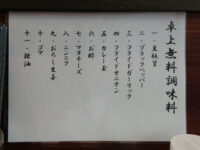 卓上無料調味料
一・豆板醤
二・ブラックペッパー
三・フライドガーリック
四・フライドオニオン
五・カレー粉
六・お酢
七・マヨネーズ
八・ニンニク
九・おろし生姜
十・ゴマ
十一・醤油